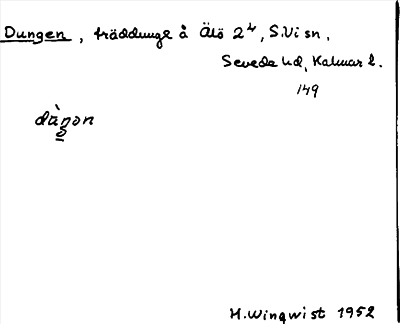 Dungen, träddunge å Älö 2⁴, S.Vi sn,
Sevede hd, Kalmar l.
149
dùŋon
H. Winqvist 1952